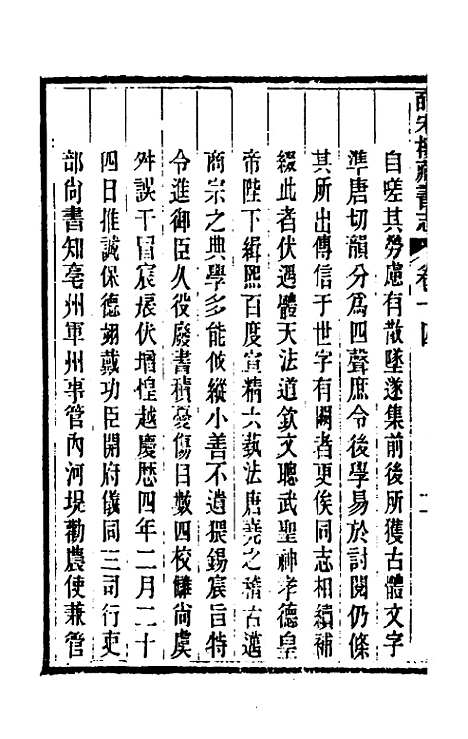 皕宋樓藏書志 卷十四 十一
自嗟其勞慮有散墜遂集前後所獲古體文字
準唐切韻分爲四聲庶令後學易於討閱仍條
其所出傳信于世字有闕者更俟同志相續補
綴此者伏遇體天法道欽文聰武聖神孝德皇
帝陛下緝熙百度宣精六藝法唐堯之稽古邁
商宗之典學多能攸縱小善不遺猥錫宸旨特
令進御臣久役廢書積憂傷目數四校讎尚虞
舛誤干冒宸扆伏增惶越慶歷四年二月二十
四日推誠保德翊戴功臣開府儀同三司行吏
部尚書知亳州軍州事管內河堤勸農使兼管